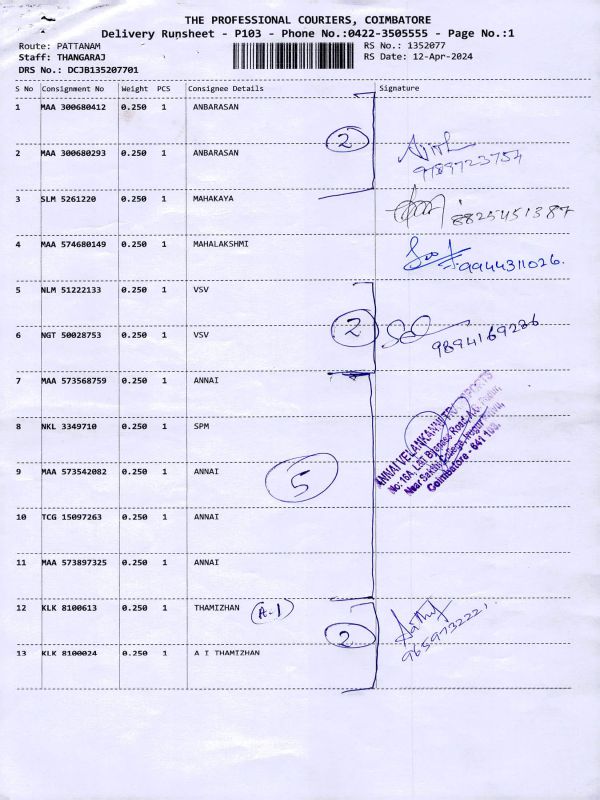 THE PROFESSIONAL COURIERS, COIMBATORE
Delivery Runsheet - P103 - Phone No.:0422-3505555 - Page No.:1
Route: PATTANAM RS No.: 1352077
Staff: THANGARAJ RS Date: 12-Apr-2024
DRS No.: DCJB135207701
S No Consignment No Weight PCS Consignee Details Signature
1 MAA 300680412 0.250 1 ANBARASAN
2
2 MAA 300680293 0.250 1 ANBARASAN
9789723754
3 SLM 5261220 0.250 1 MAHAKAYA 8825451387
4 MAA 574680149 0.250 1 MAHALAKSHMI
9944311026.
5 NLM 51222133 0.250 1 VSV
6 NGT 50028753 0.250 1 VSV 2 9894169286
7 MAA 573568759 0.250 1 ANNAI
8 NKL 3349710 0.250 1 SPM
9 MAA 573542082 0.250 1 ANNAI 5
ANNAI VELANKANNI
No: 16A, L&T Bypass Road,
Near Sakthi College,
Coimbatore - 641 103.
10 TCG 15097263 0.250 1 ANNAI
11 MAA 573897325 0.250 1 ANNAI
12 KLK 8100613 0.250 1 THAMIZHAN A-1
2 Sathy
9659732221
13 KLK 8100024 0.250 1 A I THAMIZHAN